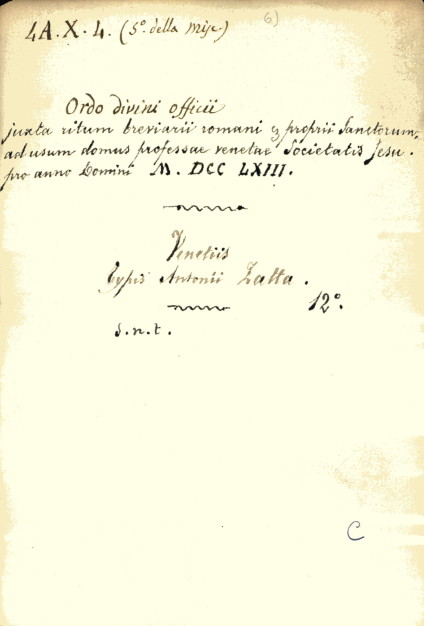 4A.X.4. (5º. della Misc.)
6)
Ordo divini officii
juxta ritum breviarii romani & proprii Sanctorum,
ad usum domus professae venetae Societatis Jesu.
pro anno Domini M. DCC LXIII.
Venetiis
Typis Antonii Zatta.
12º.
s.n.t.
C